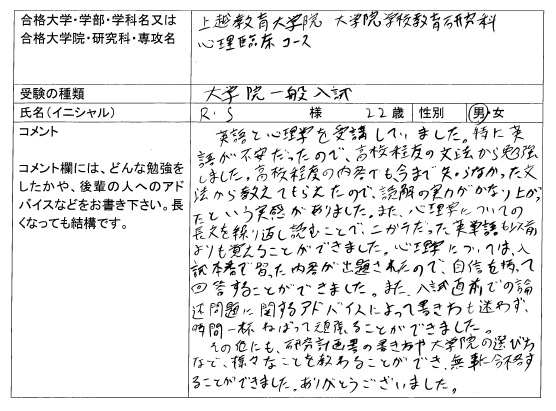 合格大学・学部・学科名又は
合格大学院・研究科・専攻名
上越教育大学院 大学院学校教育研究科
心理臨床コース
受験の種類
大学院一般入試
氏名(イニシャル)
R.S 様 22歳 性別 男・女
コメント
コメント欄には、どんな勉強を
したかや、後輩の人へのアド
バイスなどをお書き下さい。長
くなっても結構です。
英語と心理学を受講していました。特に英
語が不安だったので、高校程度の文法から勉強
しました。高校程度の内容でも今まで知らなかった文
法から教えてもらえたので、読解の実力がかなり上がっ
たという実感がありました。また、心理学についての
長文を繰り返し読むことで、ニガテだった英単語も以前
よりも覚えることができました。心理学については、入
試本番で習った内容が出題されたので、自信を持って
回答することができました。また、入試直前での論
述問題に関するアドバイスによって書き方も迷わず、
時間一杯ねばって頑張ることができました。
その他にも、研究計画書の書き方や大学院の選び方
など、様々なことを教わることができ、無事に合格す
ることができました。ありがとうございました。